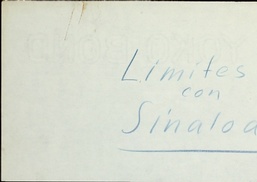 Limites
con
Sinaloa